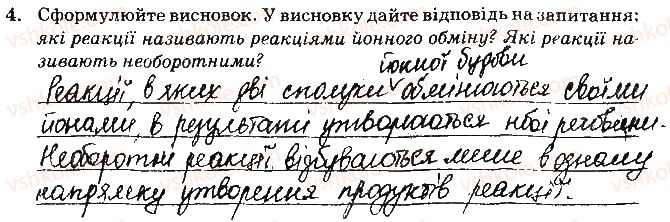 4. Сформулюйте висновок. У висновку дайте відповідь на запитання:
які реакції називають реакціями йонного обміну? Які реакції на-
зивають необоротними?
йонної будови
Реакції, в яких дві сполуки обмінюються своїми
йонами, в результаті утворюються нові речовини.
Необоротні реакції відбуваються лише в одному
напрямку утворення продуктів реакції.